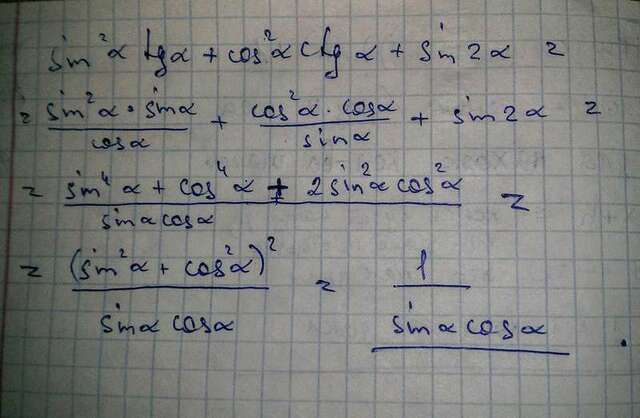 sin²α tgα + cos²α ctg α + sin 2α =
= sin²α · sinα / cosα + cos²α · cosα / sinα + sin 2α =
= sin⁴α + cos⁴α + 2sin²α cos²α / sinα cosα =
= (sin²α + cos²α)² / sinα cosα = 1 / sinα cosα .